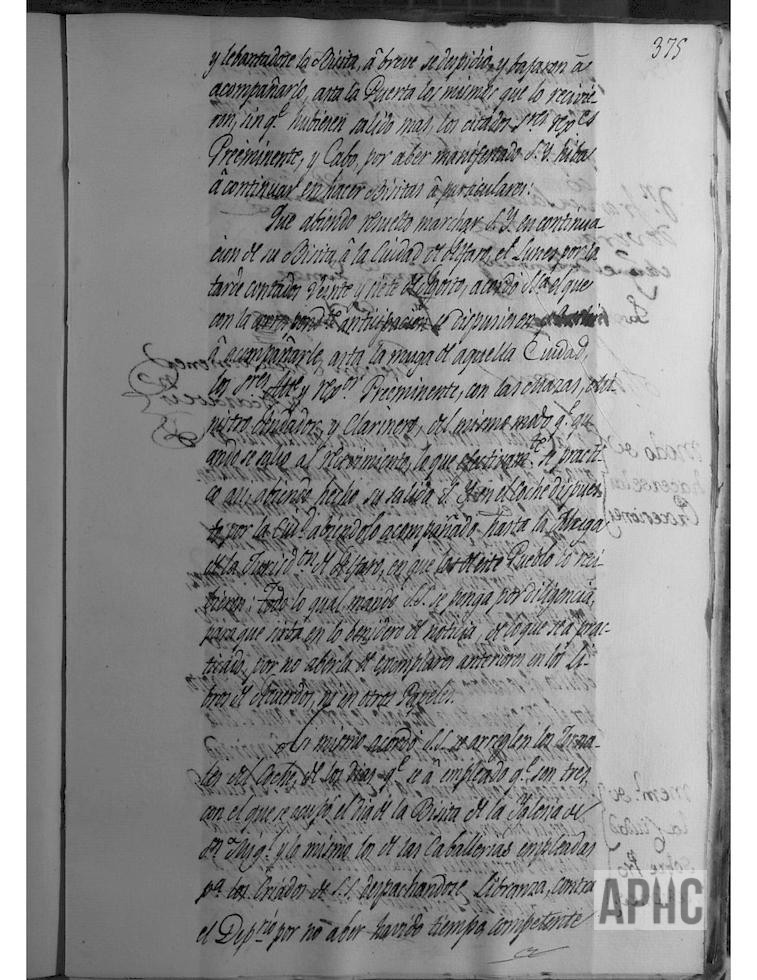 375
y lebantadose la Bisita, â breve se despidió, y bajaron â
acompañarlo, asta la Puerta los mismos que lo recivie-
ron, sin qᵉ hubiesen salido mas, los citados Sʳᵉˢ Rexᵒʳᵉˢ
Preeminente, y Cabo, por aber manifestado S.Y. hiba
â continuar en hacer Bisitas â particulares.
Que abiendo resuelto marchar S.Y. en continua
cion de su Bisita, â la Ciudad de Alfaro, el Lunes por la
tarde contados veinte y siete de Agosto, acordó S.S. el que
con la anticipacion se dispusiesen
â acompañarle, asta la muga de aquella Ciudad,
los Sʳᵉˢ Alcᵉ y Rexᵒʳ Preeminente, con las Mazas, Mi-
nistro, y Clarinero, del mismo modo qᵉ qu
ando se salio al recivimiento, lo que efectivamᵗᵉ se practi-
có asi, abiendo hecho su salida S.Y. en el Coche dispues
to por la Ciuᵈ abiendolo acompañado hasta la Muga
de la Jurisdᵒⁿ de Alfaro, en que los de este Pueblo lo reci-
bieron; Todo lo qual mandó S.S. se ponga por diligencia,
para que sirba en lo benidero de noticia, de lo que se a prac-
ticado, por no aberla de exemplares anteriores en los Li-
bros de Acuerdos, ni en otros Papeles.
Asi mismo acordó S.S. se arreglen los Jorna-
les del Coche, de los dias qᵉ se â empleado qᵉ son tres,
con el que se ocupó el dia de la Bisita de la Yglesia de
Sⁿ Migˡ y lo mismo los de las Caballerias empleadas
pᵃ los Criados de S.Y. despachandose Libranza, contra
el Depᵗʳⁱᵒ por no aber havido tiempo competente
APHC